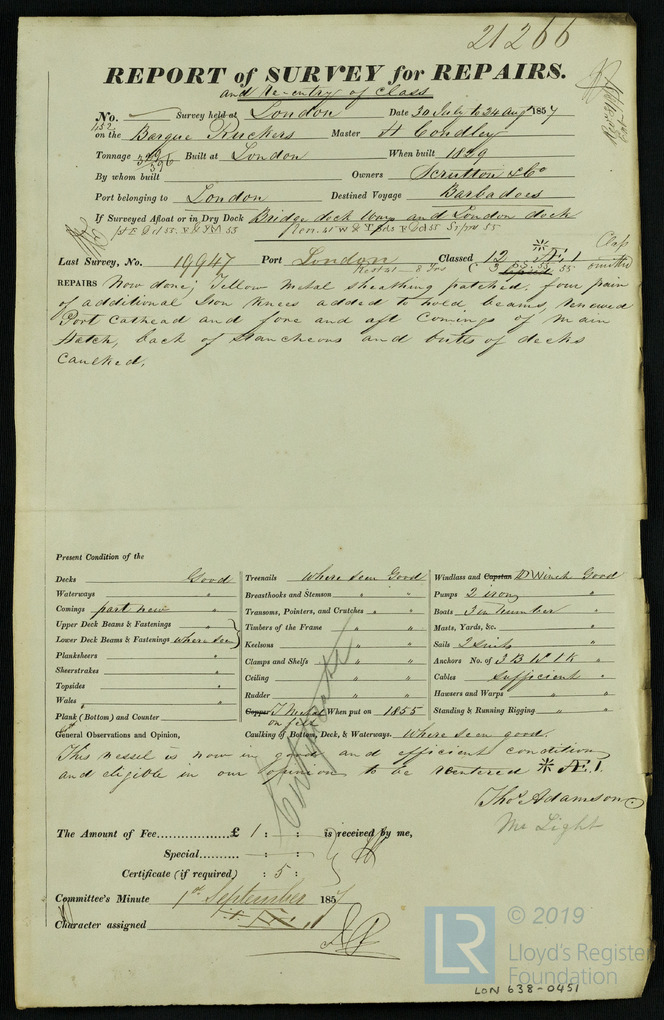 21266
REPORT of SURVEY for REPAIRS.
and Re-entry of Class
No. Survey held at London Date 30 July to 24 Augt 1857
on the Barque Ruckers Master H Condley
Tonnage Built at London When built 1829
By whom built Owners Scrutton & Co
Port belonging to London Destined Voyage Barbadoes
If Surveyed Afloat or in Dry Dock Bridge dock Wapg and London dock
Last Survey, No. 19947 Port London Classed 12 Æ 1 Class omitted
REPAIRS Now done; Yellow metal sheathing patched. four pair
of additional Iron Knees added to hold beams, renewed
Port Cathead and fore and aft Comings of Main
Hatch, back of Stancheons and butts of decks
Caulked.
Present Condition of the
Decks Good
Waterways "
Comings part new "
Upper Deck Beams & Fastenings
Lower Deck Beams & Fastenings where seen "
Planksheers "
Sheerstrakes "
Topsides "
Wales "
Plank (Bottom) and Counter "
Treenails Where seen Good
Breasthooks and Stemson " "
Transoms, Pointers, and Crutches " "
Timbers of the Frame " "
Keelsons " "
Clamps and Shelfs " "
Ceiling " "
Rudder " "
Copper Y Metal When put on 1855
on felt
Windlass and Capstan Winch Good
Pumps 2 iron "
Boats 3 in Number "
Masts, Yards, &c. "
Sails 2 suits "
Anchors No. of 3 B 1 S 1 K "
Cables Sufficient "
Hawsers and Warps "
Standing & Running Rigging "
General Observations and Opinion, Caulking of Bottom, Deck, & Waterways. Where seen good.
This vessel is now in good and efficient condition
and eligible in our opinion to be reentered Æ 1.
Thos Adamson
Mr Light
The Amount of Fee £ 1 : : is received by me,
Special : :
Certificate (if required) : 5 :
Committee's Minute 1st September 1857
Character assigned
LR
© 2019
Lloyd's Register
Foundation
LON 638-0451